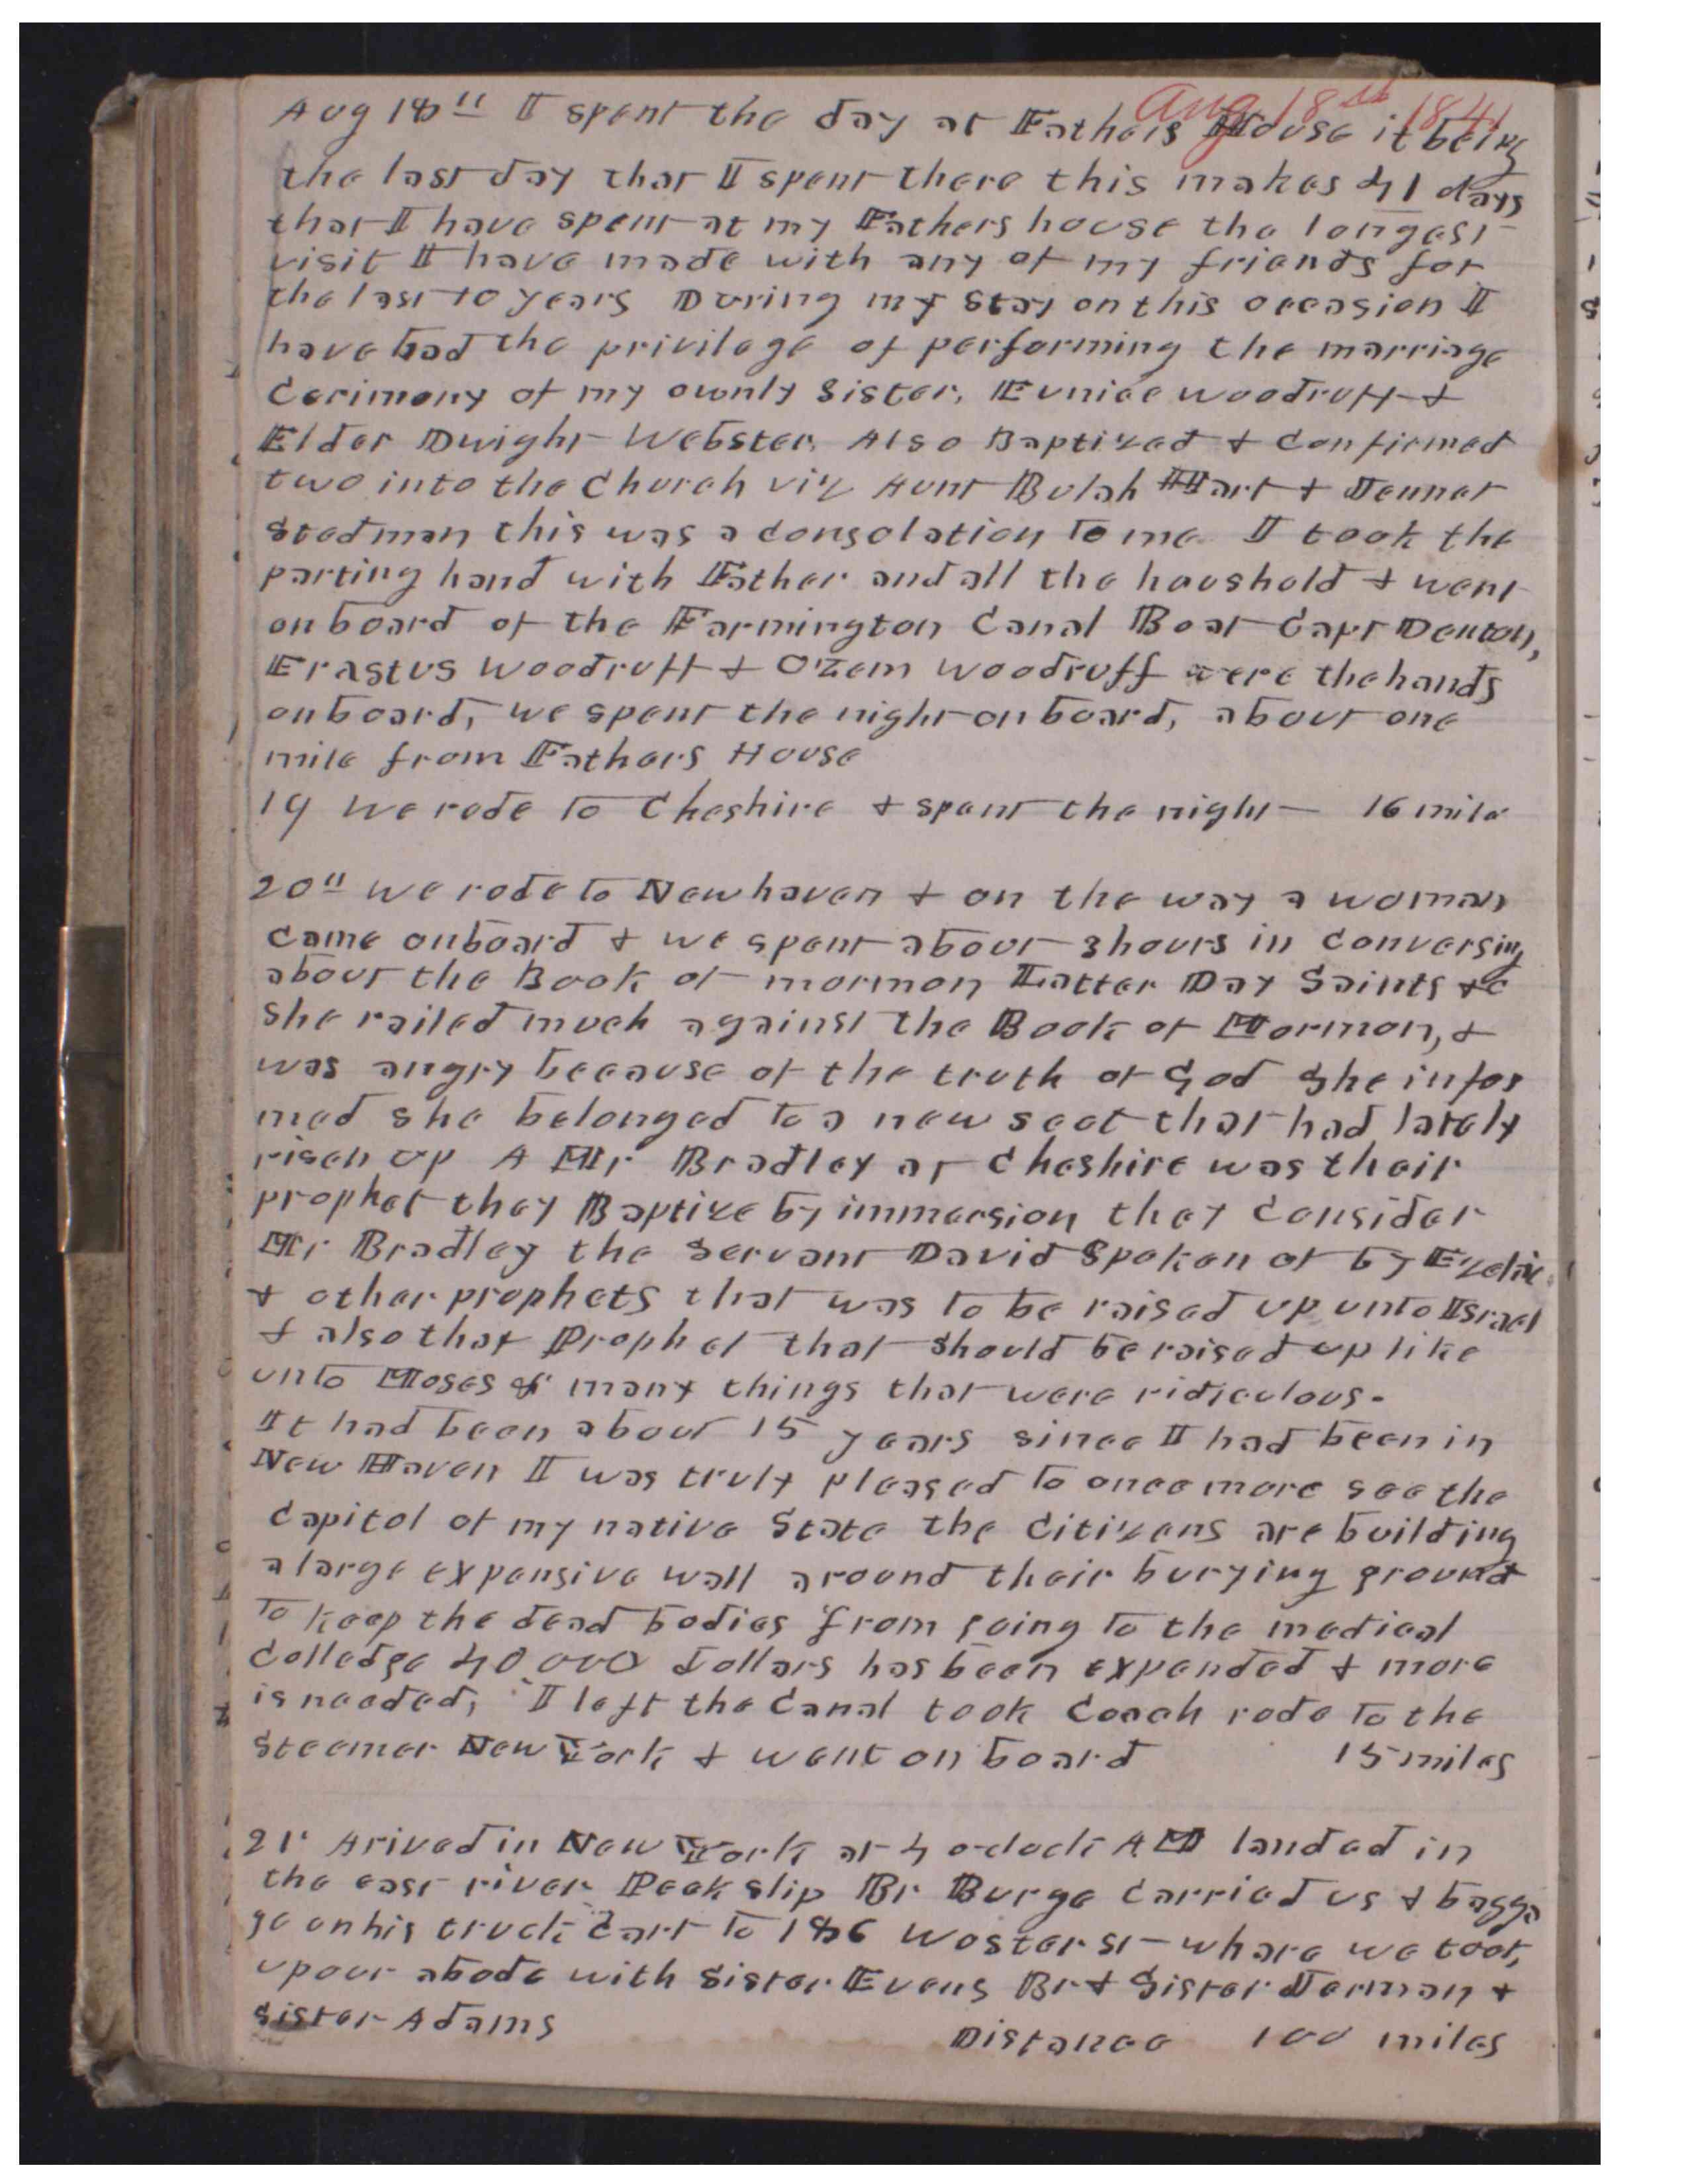 Aug 18th 1841
Aug 18" I spent the day at Fathers House it being
the last day that I spent there this makes 41 days
that I have spent at my Fathers house the longest
visit I have made with any of my friends for
the last 10 years During my stay on this occasion I
have had the privilege of performing the marriage
Cerimony of my ownly Sister, Eunice woodruff &
Elder Dwight Webster. Also Baptized & Confirmed
two into the Church viz Aunt Bulah Hart & Jennet
Stedman this was a consolation to me I took the
parting hand with Father and all the haushold & went
on board of the Farmington Canal Boat Capt Denton,
Erastus Woodruff & Ozem Woodruff were the hands
on board, we spent the night on board, about one
mile from Fathers House
19 We rode to Cheshire & spent the night — 16 mile
20" we rode to Newhaven & on the way a woman
came onboard & we spent about 3 hours in conversing
about the Book of mormon Latter Day Saints &c
she railed much against the Book of Mormon, &
was angry because of the truth of God She infor
med she belonged to a new sect that had lately
risen up A Mr Bradley at Cheshire was their
prophet they Baptize by immersion they Consider
Mr Bradley the Servant David Spoken of by
& other prophets that was to be raised up unto Israel
& also that Prophet that should be raised up like
unto Moses & many things that were ridiculous.
It had been about 15 years since I had been in
New Haven I was truly pleased to once more see the
Capitol of my native State the Citizens are building
a large expensive wall around their burying ground
To keep the dead bodies from going to the medical
Colledge 40000 dollars has been expended & more
is needed, I left the Canal took Coach rode to the
Steemer New York & went on board 15 miles
21t Arived in New York at 4 o-clock AM landed in
the east river Peek slip Br Burge Carried us & bagga
ge on his truck Cart to 186 Woster st — where we took
up our abode with Sister Evens Br & Sister Jerman &
Sister Adams Distance 100 miles